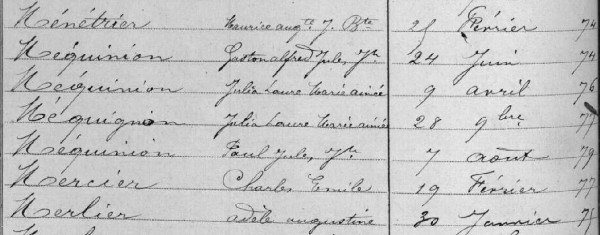 Ménétrier Maurice augte J. Bte 25 Février 74
Méquinion Gaston alfred Jules, Jh 24 Juin 74
Méquinion Julia Laure Marie aimée 9 avril 76
Méquignon Julia Laure Marie aimée 28 9bre 77
Méquinion Paul Jules, Jh 7 août 79
Mercier Charles Emile 19 Février 77
Merlier adèle augustine 30 Janvier 75